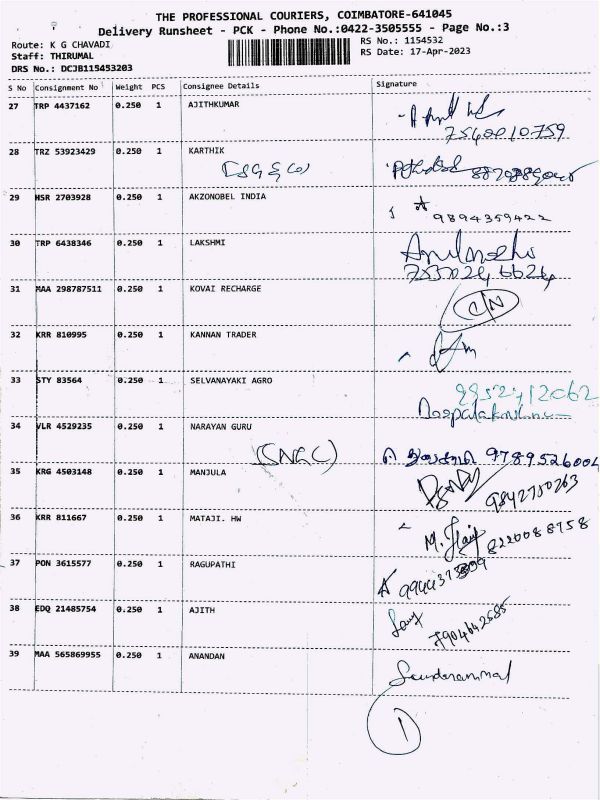 THE PROFESSIONAL COURIERS, COIMBATORE-641045
Delivery Runsheet - PCK - Phone No.:0422-3505555 - Page No.:3
Route: K G CHAVADI RS No.: 1154532
Staff: THIRUMAL RS Date: 17-Apr-2023
DRS No.: DCJB115453203
S No Consignment No Weight PCS Consignee Details Signature
27 TRP 4437162 0.250 1 AJITHKUMAR
28 TRZ 53923429 0.250 1 KARTHIK
29 HSR 2703928 0.250 1 AKZONOBEL INDIA
9894359422
30 TRP 6438346 0.250 1 LAKSHMI
31 MAA 298787511 0.250 1 KOVAI RECHARGE
32 KRR 810995 0.250 1 KANNAN TRADER
33 STY 83564 0.250 1 SELVANAYAKI AGRO
9952412062
34 VLR 4529235 0.250 1 NARAYAN GURU
(SNGC) 9789526004
35 KRG 4503148 0.250 1 MANJULA
9842750263
36 KRR 811667 0.250 1 MATAJI. HW
8220088758
37 PON 3615577 0.250 1 RAGUPATHI
38 EDQ 21485754 0.250 1 AJITH
7904642585
39 MAA 565869955 0.250 1 ANANDAN
Sounderammal
1